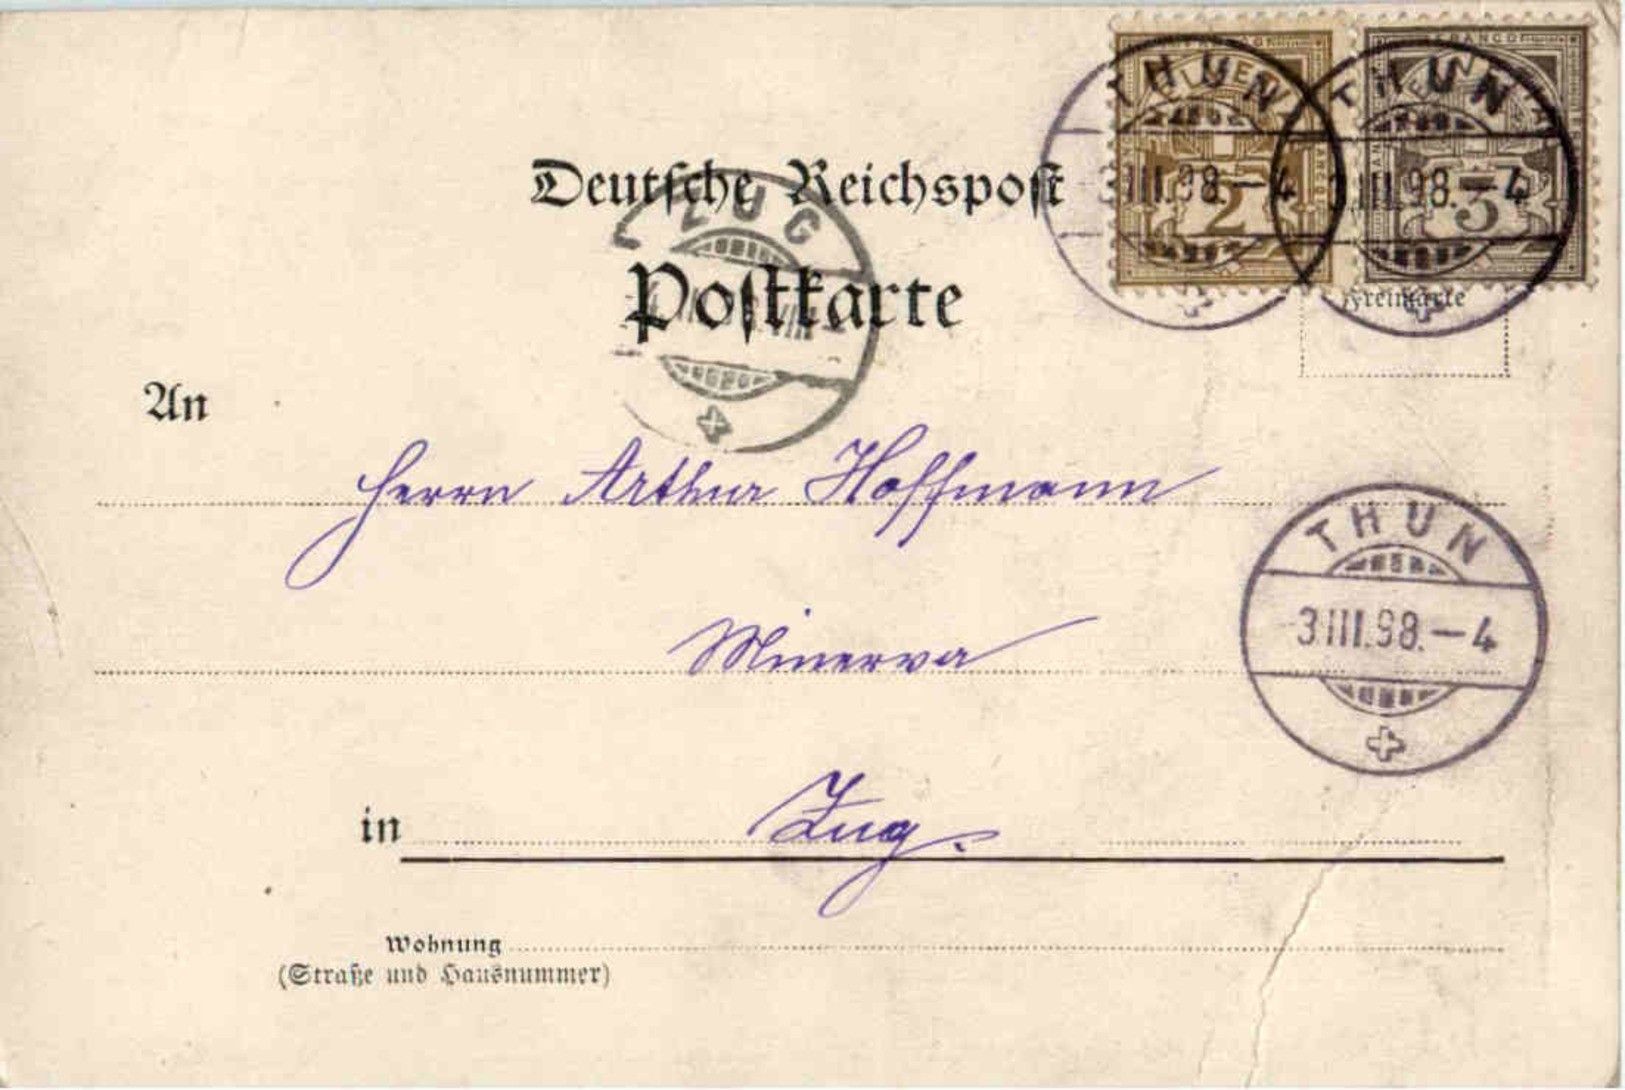 THUN
3.III.98.—4
THUN
3.III.98.—4
FRANCO
2
3
Deutsche Reichspost
ZUG
Postkarte
Freimarke
An
Herrn Arthur Hoffmann
THUN
3.III.98.—4
Minerva
in Zug.
Wohnung
(Straße und Hausnummer)